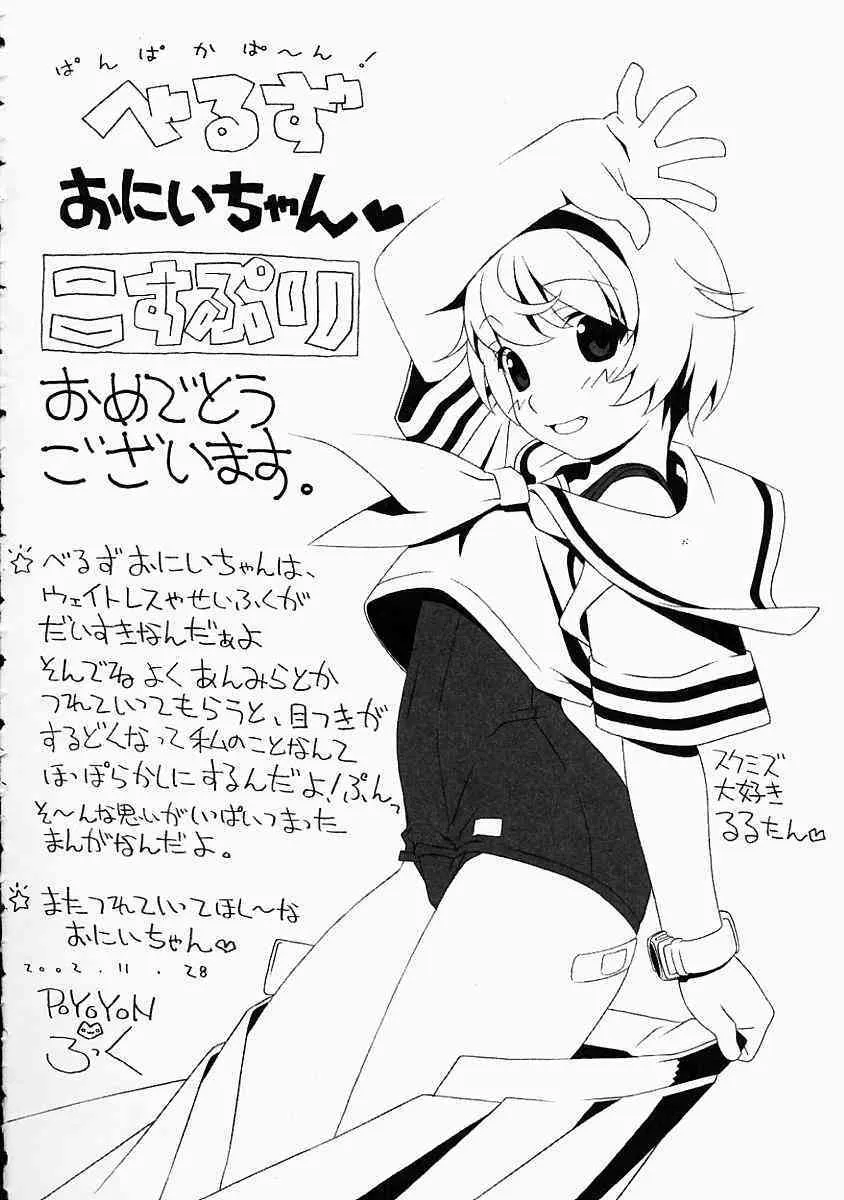 ぱんぱかぱ〜ん!
べるず
おにいちゃん♡
こすぷり
おめでとう
ございます。
☆べるずおにいちゃんは、
ウェイトレスやせいふくが
だいすきなんだぁよ
そんでねよくあんみらとか
つれていってもらうと、目つきが
するどくなって私のことなんて
ほっぽらかしにするんだよ!ぷんっ
そ〜んな思いがいっぱいつまった
まんがなんだよ。
☆またつれていてほし〜な
おにいちゃん♡
2002.11.28
POYOYON
ろっく
スクミズ
大好き
るるたん♡